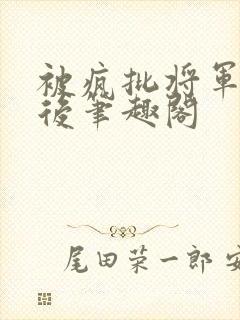 被疯批将军
後筆趣阁
尾田荣一郎